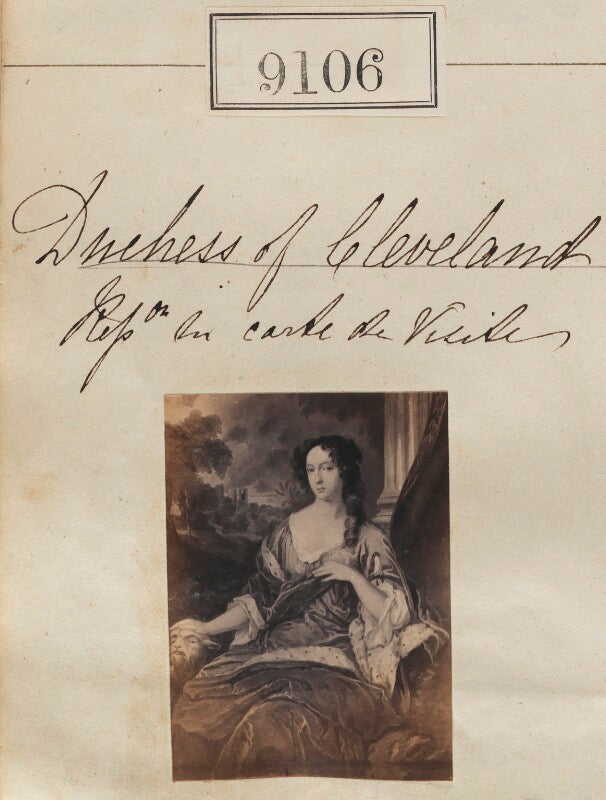 9106
Duchess of Cleveland
Rep.on in carte de Visite